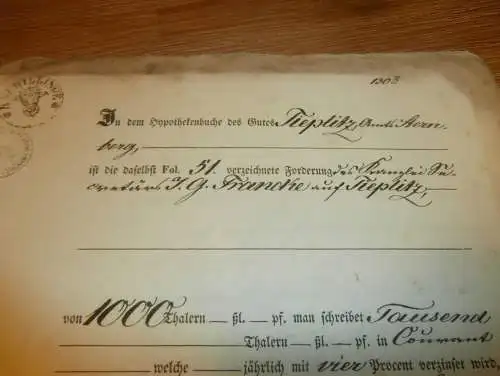 130³
In dem Hypothekenbuche des Gutes Tieplitz, Amts Stern-
berg,
ist die daselbst Fol. 51. verzeichnete Forderung des Kanzlei Se-
cretärs J. G. Francke auf Tieplitz,
von 1000 Thalern — ßl. — pf. man schreibet Tausend
Thalern — ßl. — pf. in Courant
welche — jährlich mit vier Procent verzinset wird,